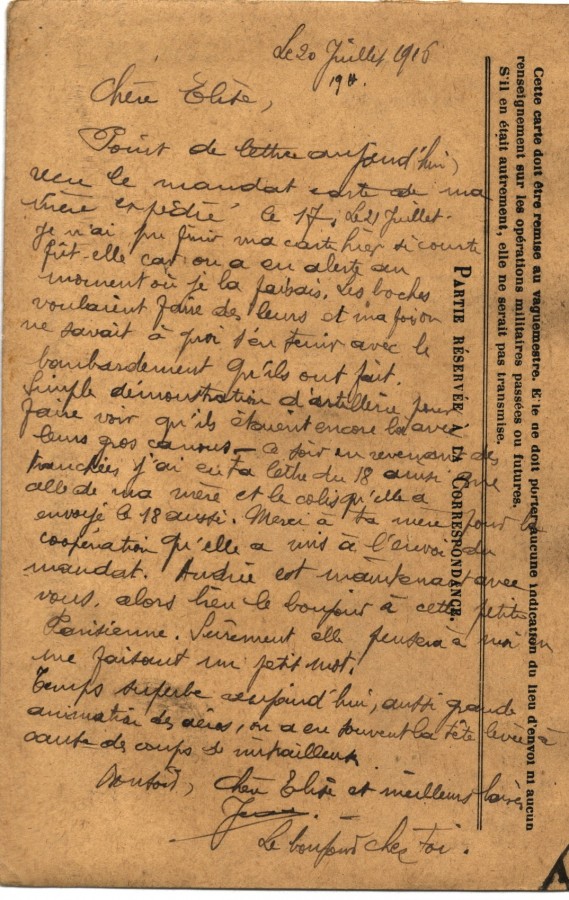 Le 20 Juillet 1916
191
Chère Elise,
Point de lettre aujourd'hui,
reçu le mandat carte de ma
mère expédié le 17. Le 21 Juillet.
Je n'ai pu finir ma carte hier si courte
fût-elle car on a eu alerte au
moment où je la faisais. Les boches
voulaient faire des leurs et ma foi on
ne savait à quoi s'en tenir avec le
bombardement qu'ils ont fait.
Simple démonstration d'artillerie pour
faire voir qu'ils étaient encore là avec
leurs gros canons - Ce soir en revenant des
tranchées j'ai eu ta lettre du 18 ainsi que
celle de ma mère et le colis qu'elle a
envoyé le 18 aussi. Merci à ta mère pour la
coopération qu'elle a mis à l'envoi du
mandat. Andrée est maintenant avec
vous, alors bien le bonjour à cette petite
Parisienne. Sûrement elle pensera à moi en
me faisant un petit mot.
Temps superbe aujourd'hui, aussi grande
animation des aéros, on a eu souvent la tête levée à
cause des coups de mitrailleuse
Bonsoir, chère Elise et meilleurs baisers
Le bonjour chez toi.
PARTIE RÉSERVÉE À LA CORRESPONDANCE.
Cette carte doit être remise au vaguemestre. Elle ne doit porter aucune indication du lieu d'envoi ni aucun
renseignement sur les opérations militaires passées ou futures.
S'il en était autrement, elle ne serait pas transmise.